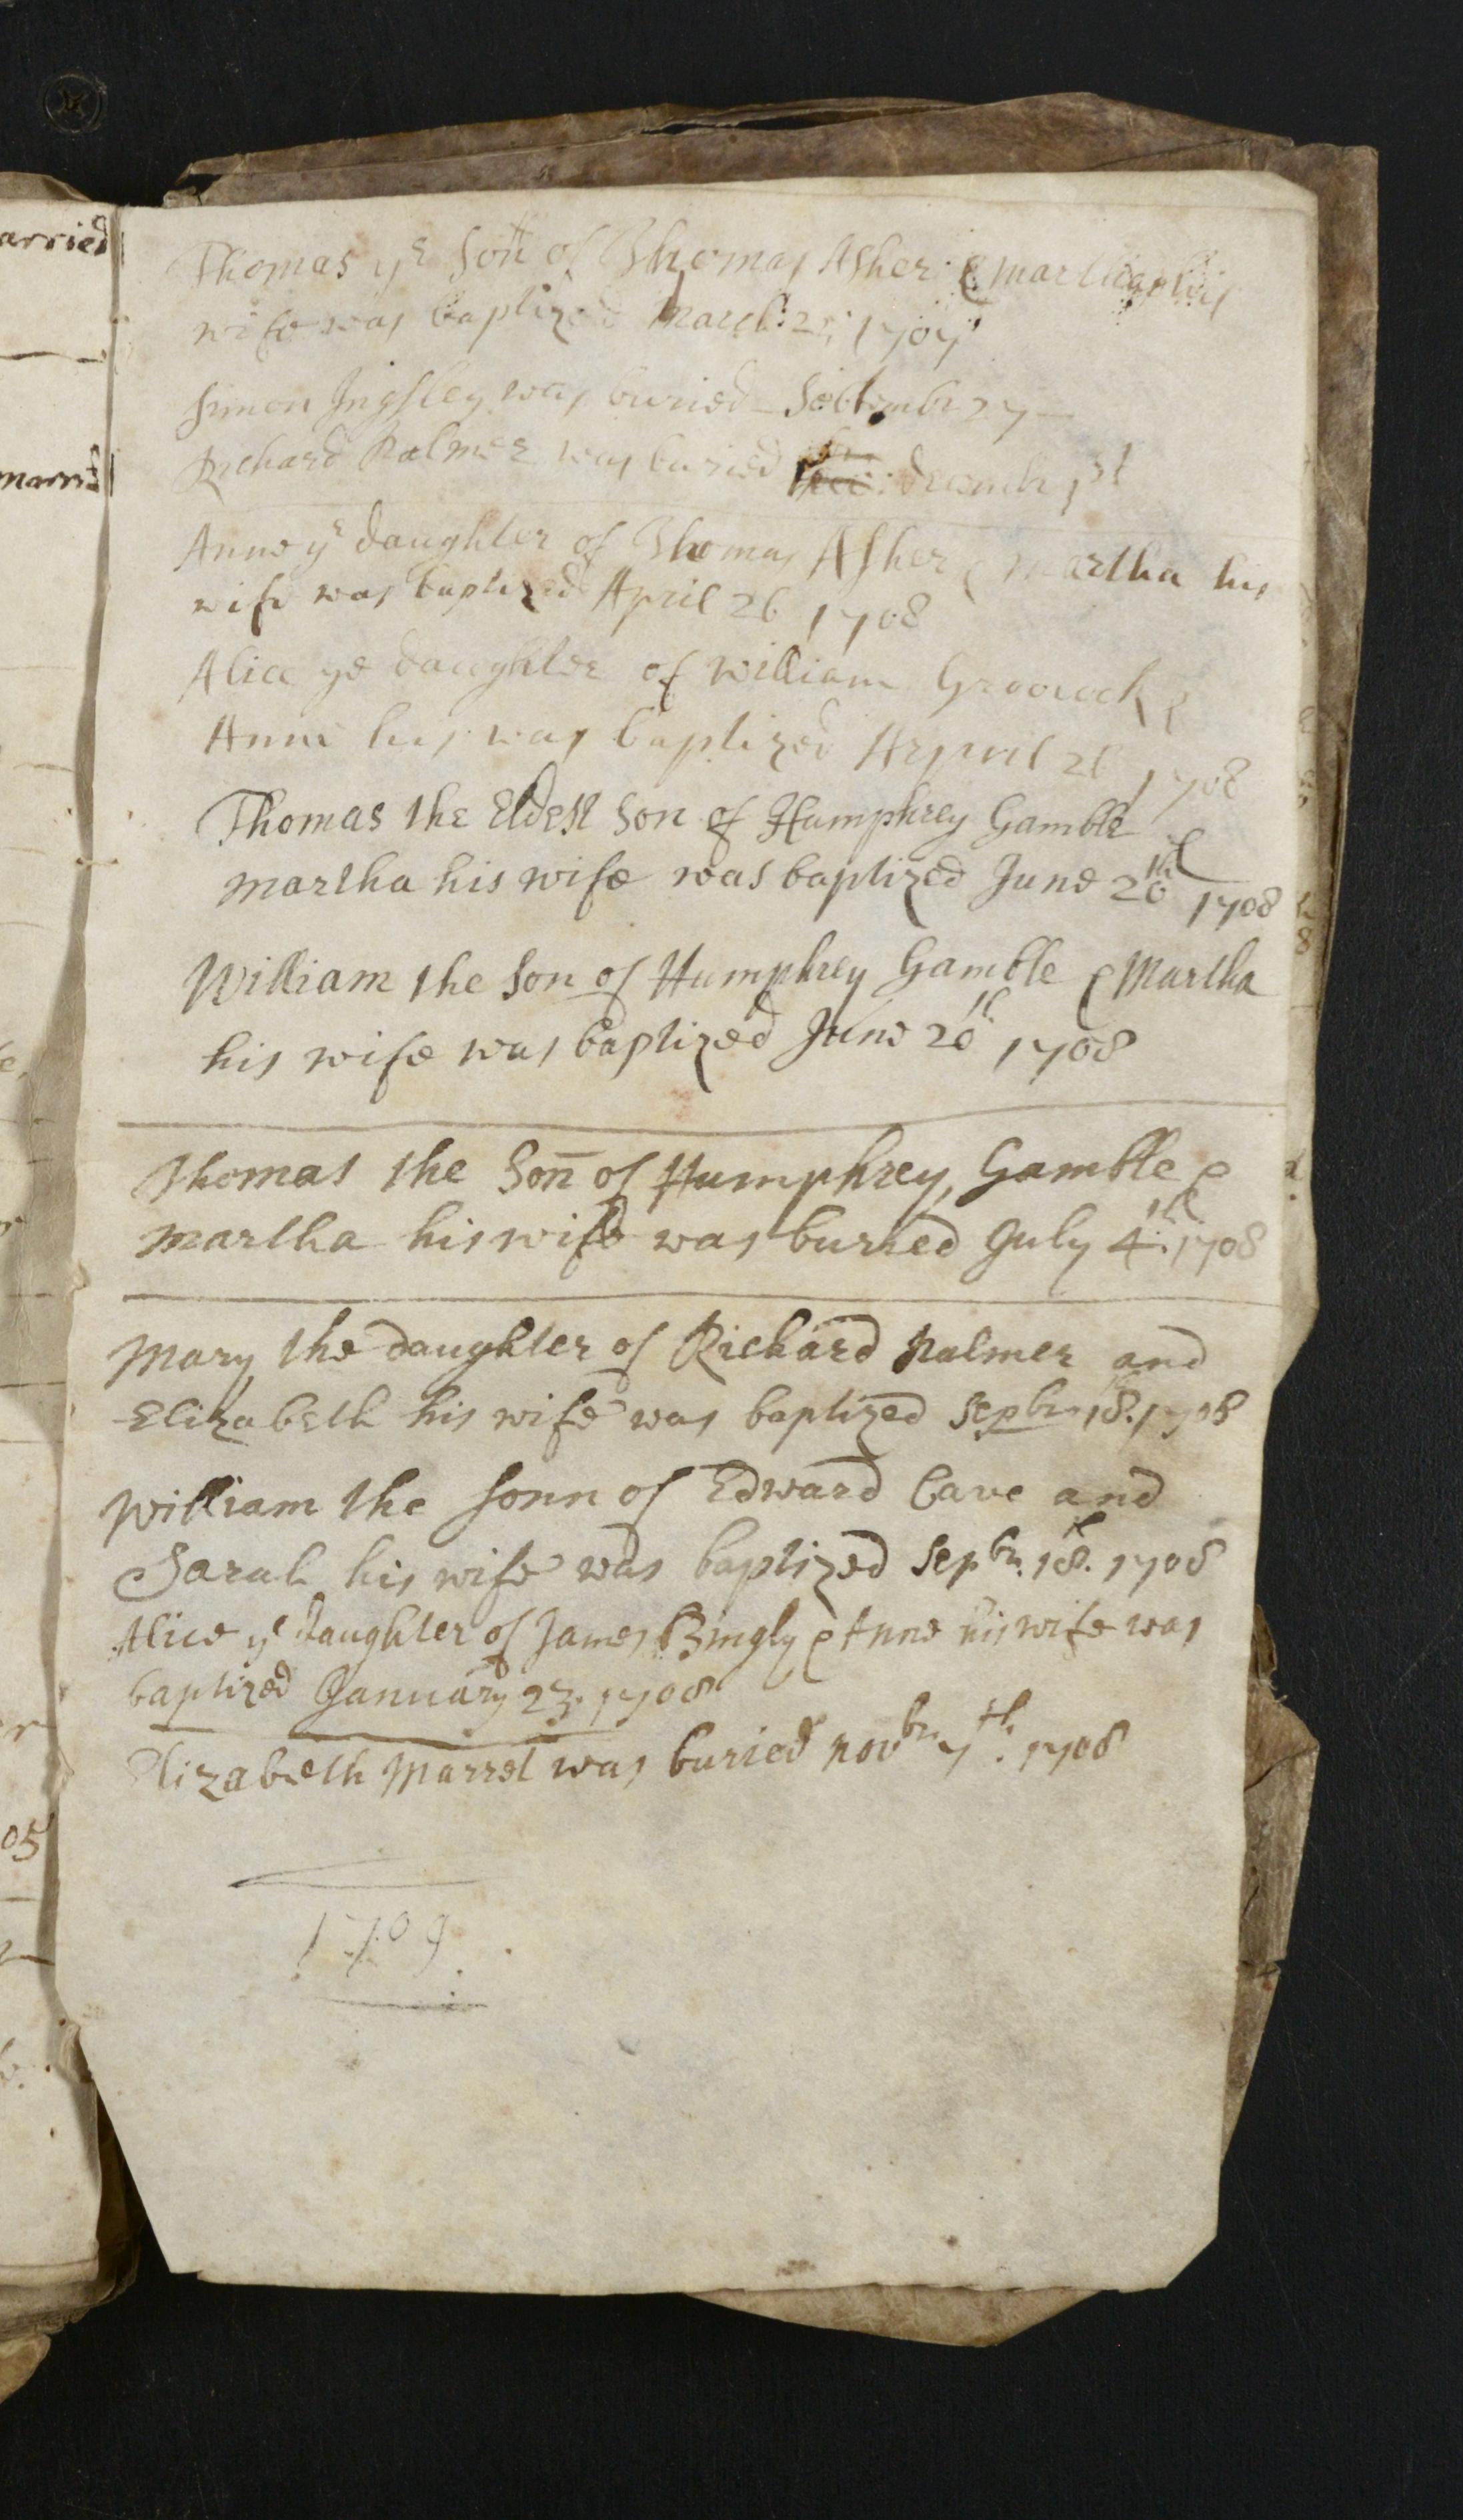 arried
marri
Thomas ye Son of Thomas Asher & martha his
wife was baptized March: 1707
Simon Ingsley was buried - Septembr 27 -
Richard Palmer was buried decembr 1st
Anne ye daughter of Thomas Asher & martha his
wife was baptized April 26 1708
Alice ye daughter of william Groocock &
Anne his was baptized Arpril 26 1708
Thomas the Eldest Son of Humphrey Gamble &
martha his wife was baptized June 20th 1708
William the Son of Humphrey Gamble & Martha
his wife was baptized June 20th 1708
Thomas the Son of Humphrey Gamble &
martha his wife was buried July 4th. 1708
Mary the daughter of Richard Palmer and
Elizabeth his wife was baptized Sepbr 18. 1708
William the Sonn of Edward Cave and
Sarah his wife was baptized Sepbr. 18th. 1708
Alice ye daughter of James Bingly & Anne his wife was
baptized January 23. 1708
Elizabeth Marret was buried novbr 7th. 1708
1709
05